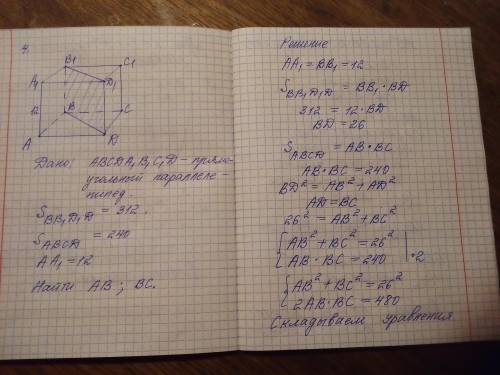 4.
B1
C1
A1
D1
12
B
C
A
D
Дано: ABCDA₁B₁C₁D - прямо-
угольный параллеле-
пипед.
S_BB₁D₁D = 312.
S_ABCD = 240
AA₁ = 12
Найти AB; BC.
Решение
AA₁ = BB₁ = 12
S_BB₁D₁D = BB₁ · BD
312 = 12 · BD
BD = 26
S_ABCD = AB · BC
AB · BC = 240
BD² = AB² + AD²
AD = BC
26² = AB² + BC²
{ AB² + BC² = 26²
AB · BC = 240 | · 2
{ AB² + BC² = 26²
2AB · BC = 480
Складываем уравнения